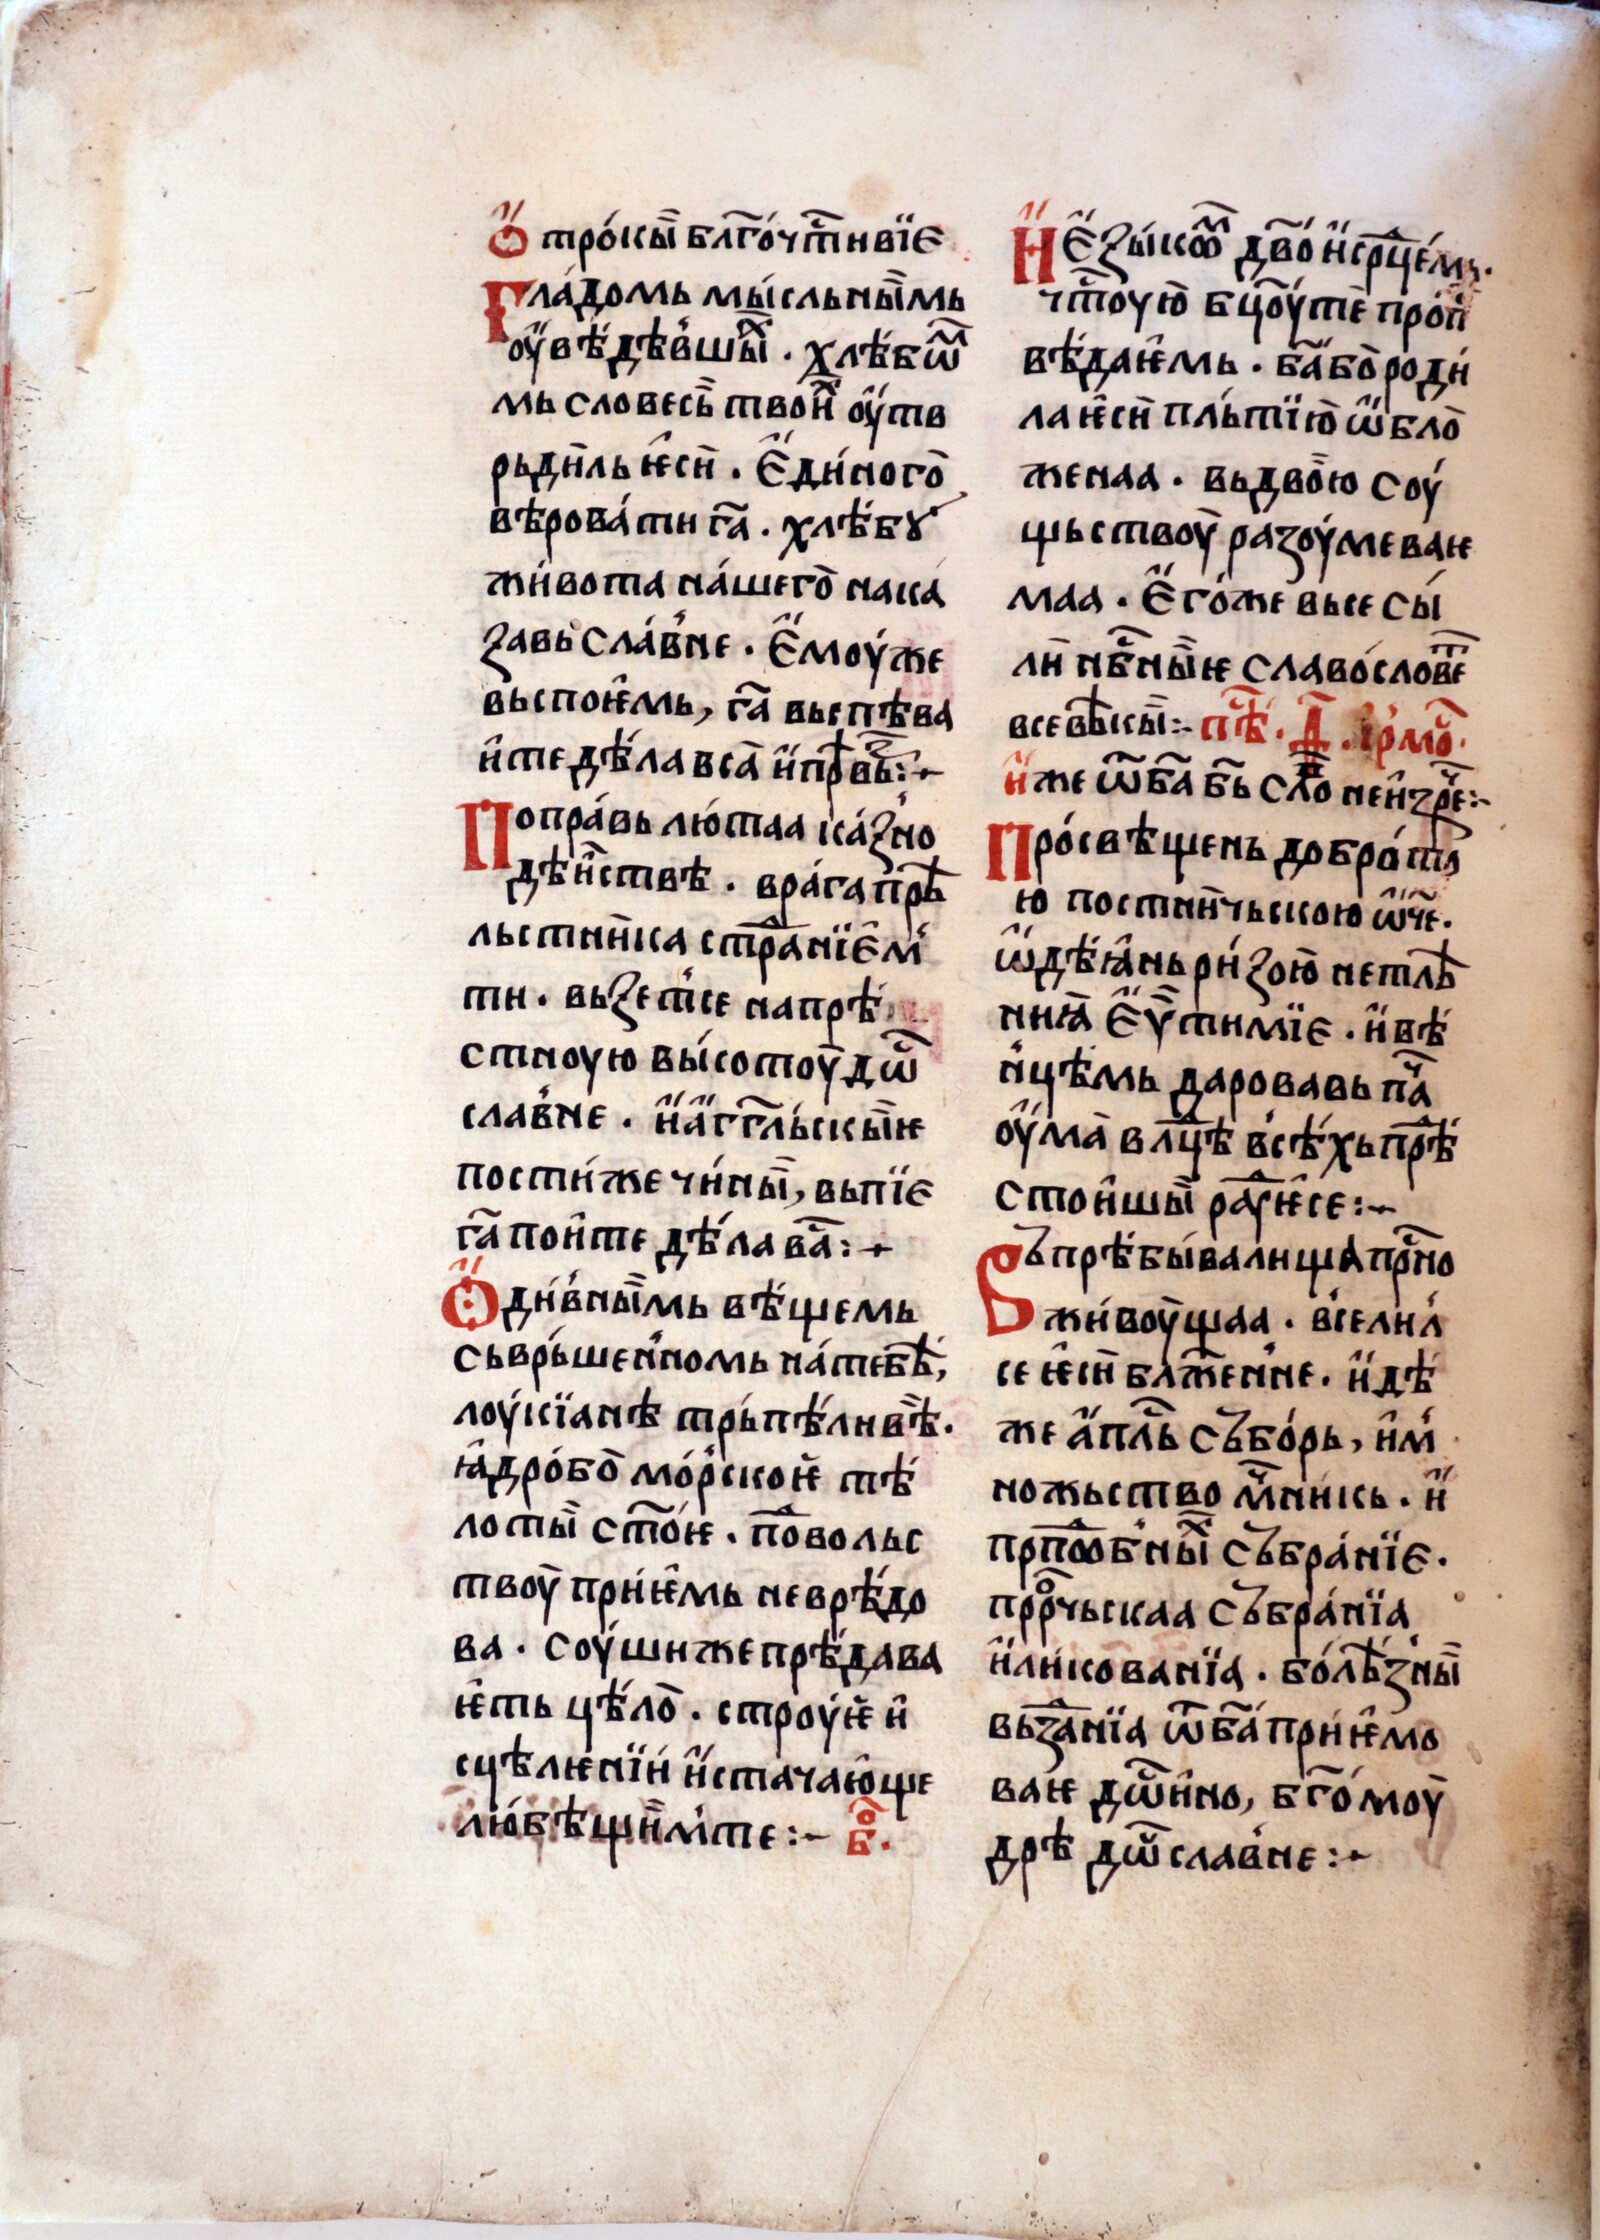 Ѻ҆ тро́кы̏ бл҃го́чт҃ивїе
Гла́домь мы́сльны̏мь
оу҆вѣ́дѣв҆шы̏х . хлѣ́бѡм
мь словесь̏ твои̏х оу҆тв
рьди̏ль ѥ҆си̏ . Е҆ди́ного̀
вѣрова́ти га҃ . хлѣ́бꙋ
жи́вота на́шего̀ нака
завь сла́в҆не . Е҆моу́же
вьспоѥ҆мь, га҃ вьспѣ́ва
и҆те дѣ́ла вса̀ и҆прѣ̏вьз :~
Попра́вь лю́таа ка́ꙁно
дѣи҆ствѣ . вра́га прѣ
льстни̏ка стр҃а́нїе҆м
ти . вьꙁет҆се напрѣ
стноую вы́сотоу̏ дѡ҃
слав҆не . и҆а҆гг҃льскы̏ѥ
пости́же чи́ны̏, вьпїе
га҃ пои҆те дѣ́ла вс҃а :~
Ѻ҆ди́в҆ны̏мь вѣ́щемь
сьврь́шен҆номь на́тебѣ̏,
лоу́кїанѣ трь́пѣ́ливѣ̏ .
ꙗ҆дро́бо̀ мо́р҆скоѥ̏ тѣ́
ло ты̏ ст҃о́ѥ . п҃овольс
твоу̏ при́ѥ҆мь неврѣ́до
ва . соу́ши же прѣ́дава
ѥ҆ть цѣ́ло̀ . строу́ѥ̀ и҆
сцѣлѥнїи́ и҆стачаю҆ще
лю́бѣщи̏м҆те :~ бо҃ .
И҆ Е҆зы́кѡм дв҃о́ и҆ср҃це́мь .
чт҃оую̀ бц҃оу́ те̏ про́п
вѣ́даѥ҆мь . ба҃ бо̀ роди́
ла ѥси̏ пль́тїю̀ ѡ҆бло̀
женаа . вьдво̏ю соу́
щьствоу̏ раꙁоу́меваѥ
маа . Е҆го́же высе сы́
ли̏ нб҃ны̏ѥ славо́словет
все вѣ̏кы̏ :~ пѣ҃ . Д҃ . і҆рмо҃ .
и҆же ѿ ба҃ бь҃ сло҃ неи҆зрѣ҃ :~
Про́свѣщень добро́то
ю постни̏чьскою ѡ҆ч҃е .
ѡ҆дѣ́ꙗ҆нь ри́ꙁою̀ нетлѣ̏
ниꙗ̀ Е҆ѵ҆тимїе . и҆вѣ́
н҆цѣмь даровавь пс҃а
оу҆ма̀ влц҃ѣ в҆сѣ́хь прѣ̏
стои҆шы̏ рд҃уѥ҆се :~
Въ прѣ́бы́валища прс҃но
жи́воу̏щаа . в҆селил
се ѥ҆си̏ бл҃жен҆не . и҆дѣ́
же а҆пл҃ь събо́рь, и҆м
ножьство мч҃ни́кь . и҆
прпⷣобны̏х събра́нїе .
прⷪ҇рчьскаа събра́нїа
и҆ли́кованїа . бо́лѣ́ꙁны̏
вьꙁд҃анїа ѿ ба҃ при́ѥ҆мо
ваѥ дѡ҃и҆но, бг҃о́моу̏
дрѣ дѡ҃слав҆не :~